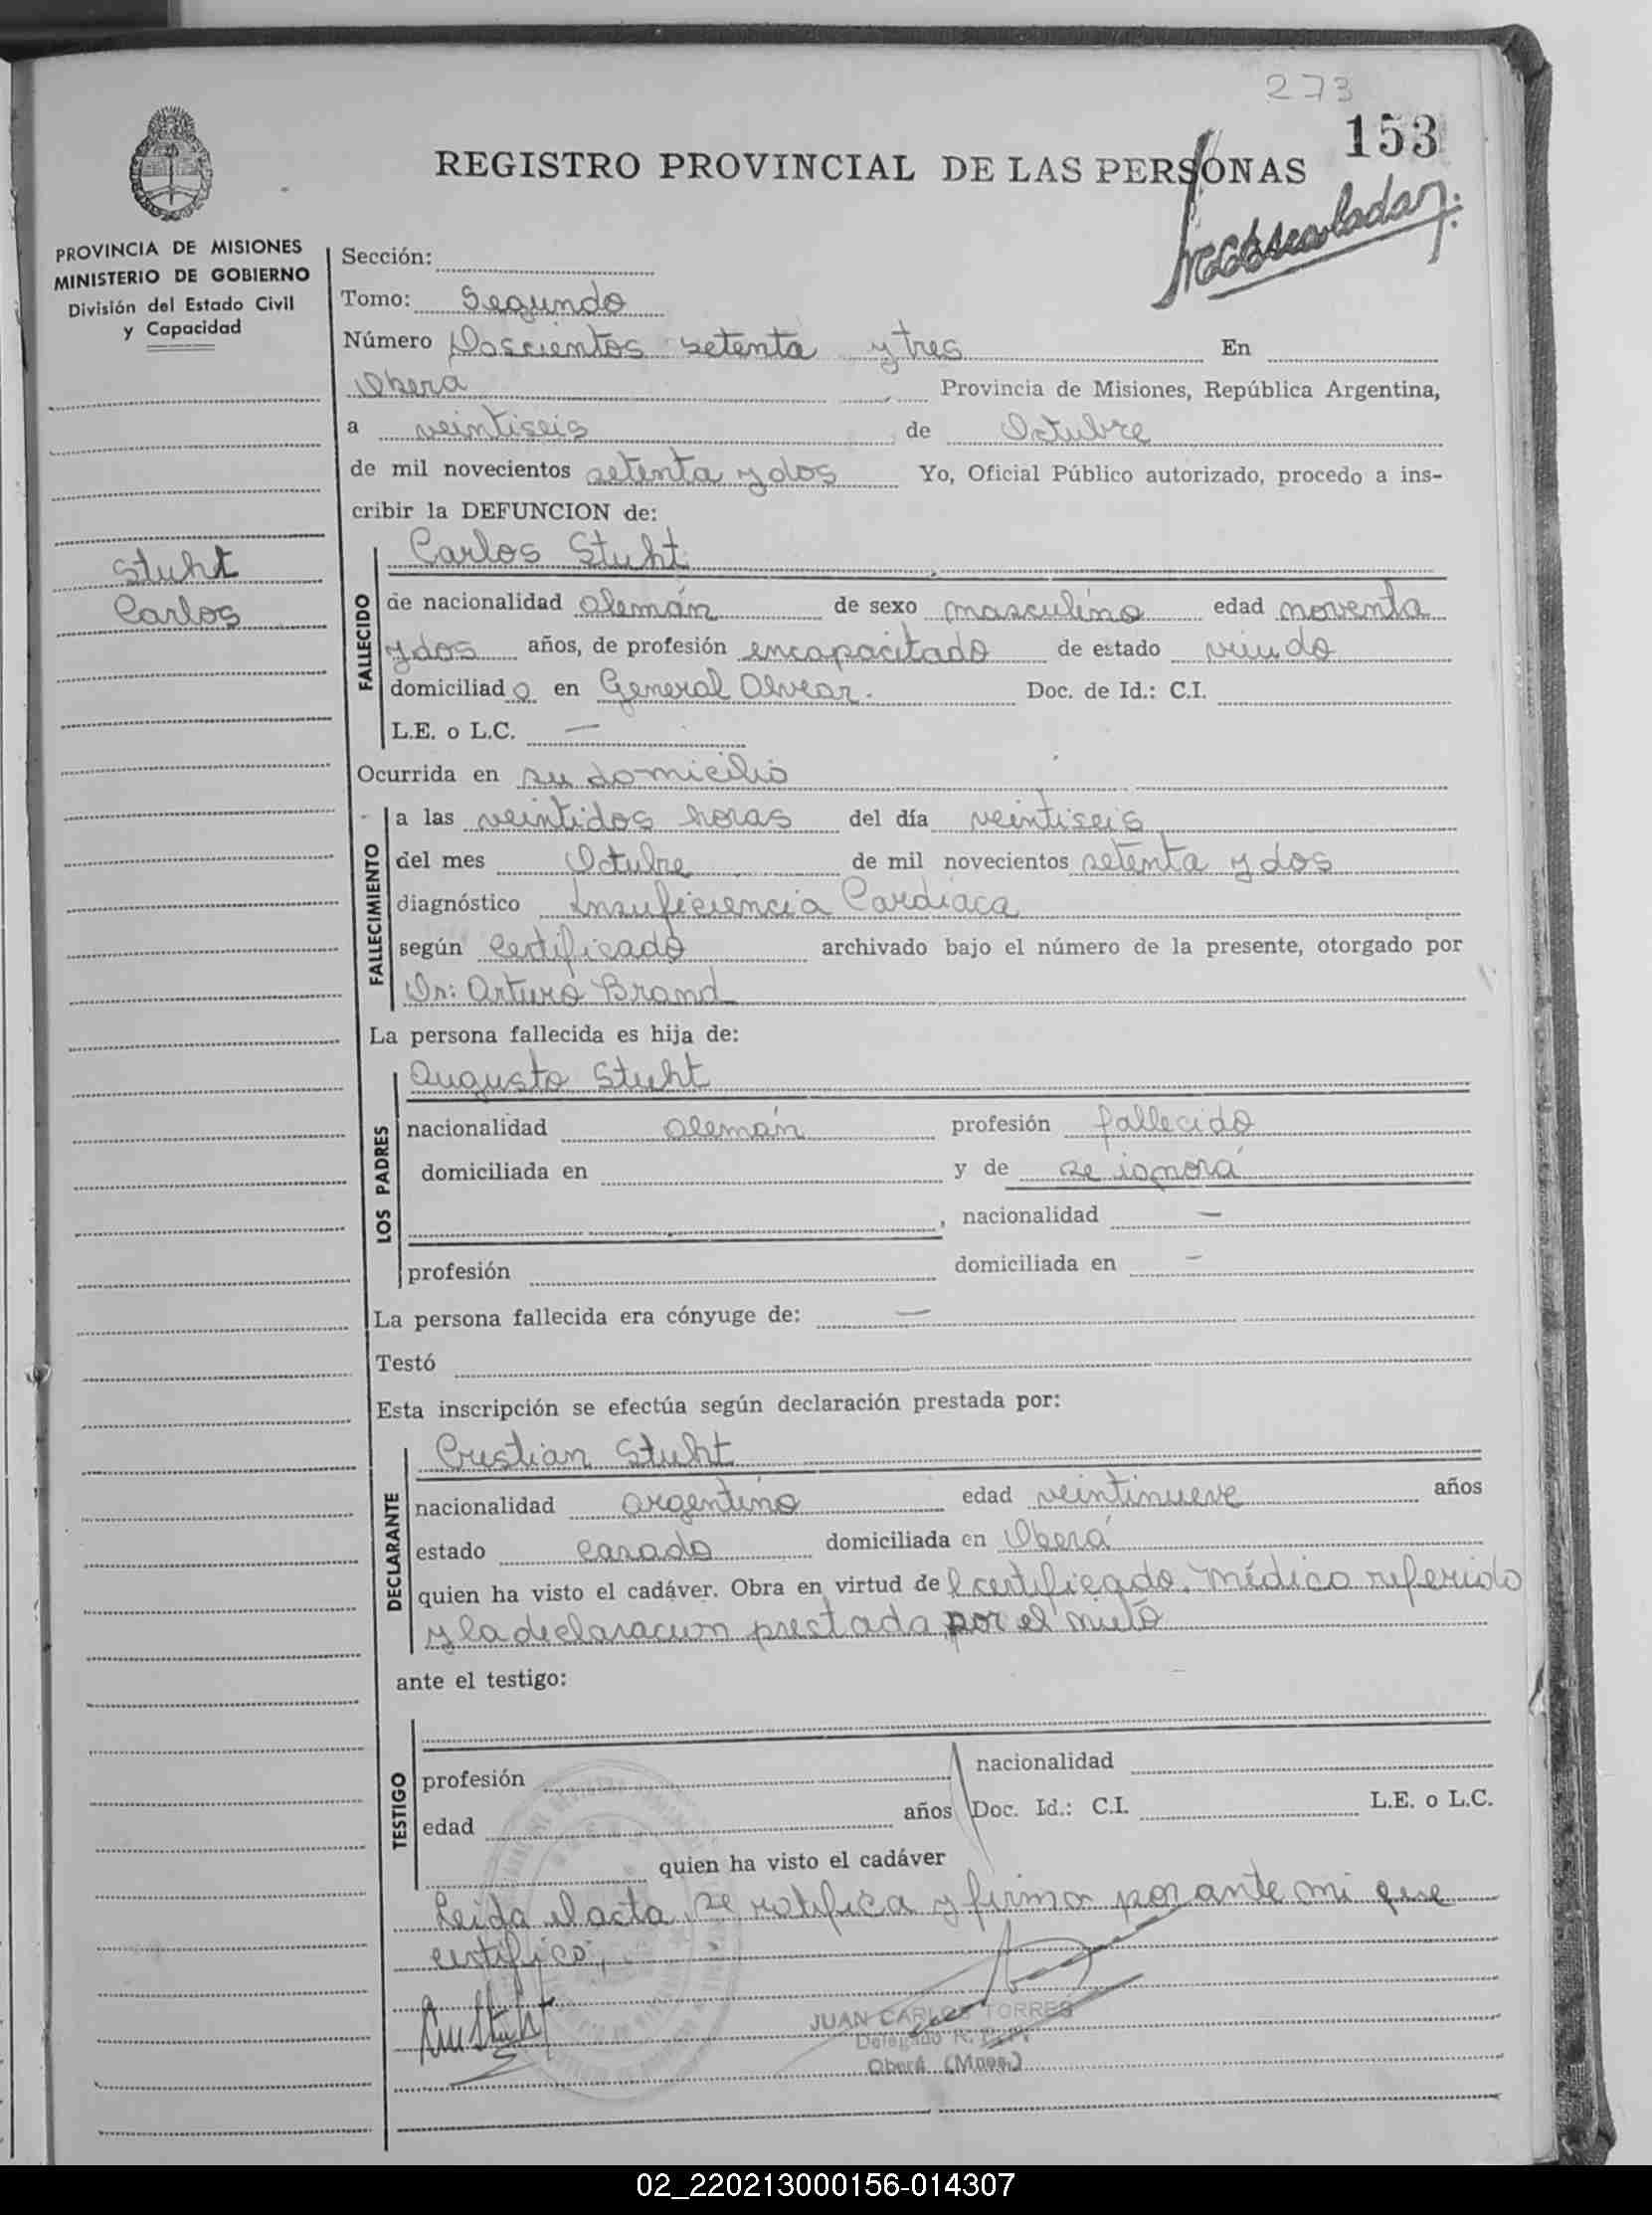 273
153
REGISTRO PROVINCIAL DE LAS PERSONAS
PROVINCIA DE MISIONES
MINISTERIO DE GOBIERNO
División del Estado Civil
y Capacidad
Sección:
Tomo: Segundo
Número Doscientos setenta y tres En
Obera Provincia de Misiones, República Argentina,
a veintiseis de Octubre
de mil novecientos setenta y dos Yo, Oficial Público autorizado, procedo a ins-
cribir la DEFUNCION de:
Stuht
Carlos
FALLECIDO
Carlos Stuht
de nacionalidad alemán de sexo masculino edad noventa
y dos años, de profesión encapacitado de estado viudo
domiciliado en General Alvear. Doc. de Id.: C.I.
L.E. o L.C. —
Ocurrida en su domicilio
FALLECIMIENTO
a las veintidos horas del día veintiseis
del mes Octubre de mil novecientos setenta y dos
diagnóstico Insuficiencia Cardiaca
según certificado archivado bajo el número de la presente, otorgado por
Dr: Arturo Brand
La persona fallecida es hija de:
LOS PADRES
Augusto Stuht
nacionalidad alemán profesión fallecido
domiciliada en y de se ignora
, nacionalidad —
profesión domiciliada en —
La persona fallecida era cónyuge de: —
Testó
Esta inscripción se efectúa según declaración prestada por:
DECLARANTE
Cristian Stuht
nacionalidad argentino edad veintinueve años
estado casado domiciliada en Oberá
quien ha visto el cadáver. Obra en virtud del certificado médico referido
y la declaracion prestada por el nieto
ante el testigo:
TESTIGO
profesión nacionalidad
edad años Doc. Id.: C.I. L.E. o L.C.
quien ha visto el cadáver
Leida el acta se ratifica y firma por ante mi que
certifico;
JUAN CARLOS TORRES
Delegado R. P. P.
Oberá (Mnes.)
02_220213000156-014307